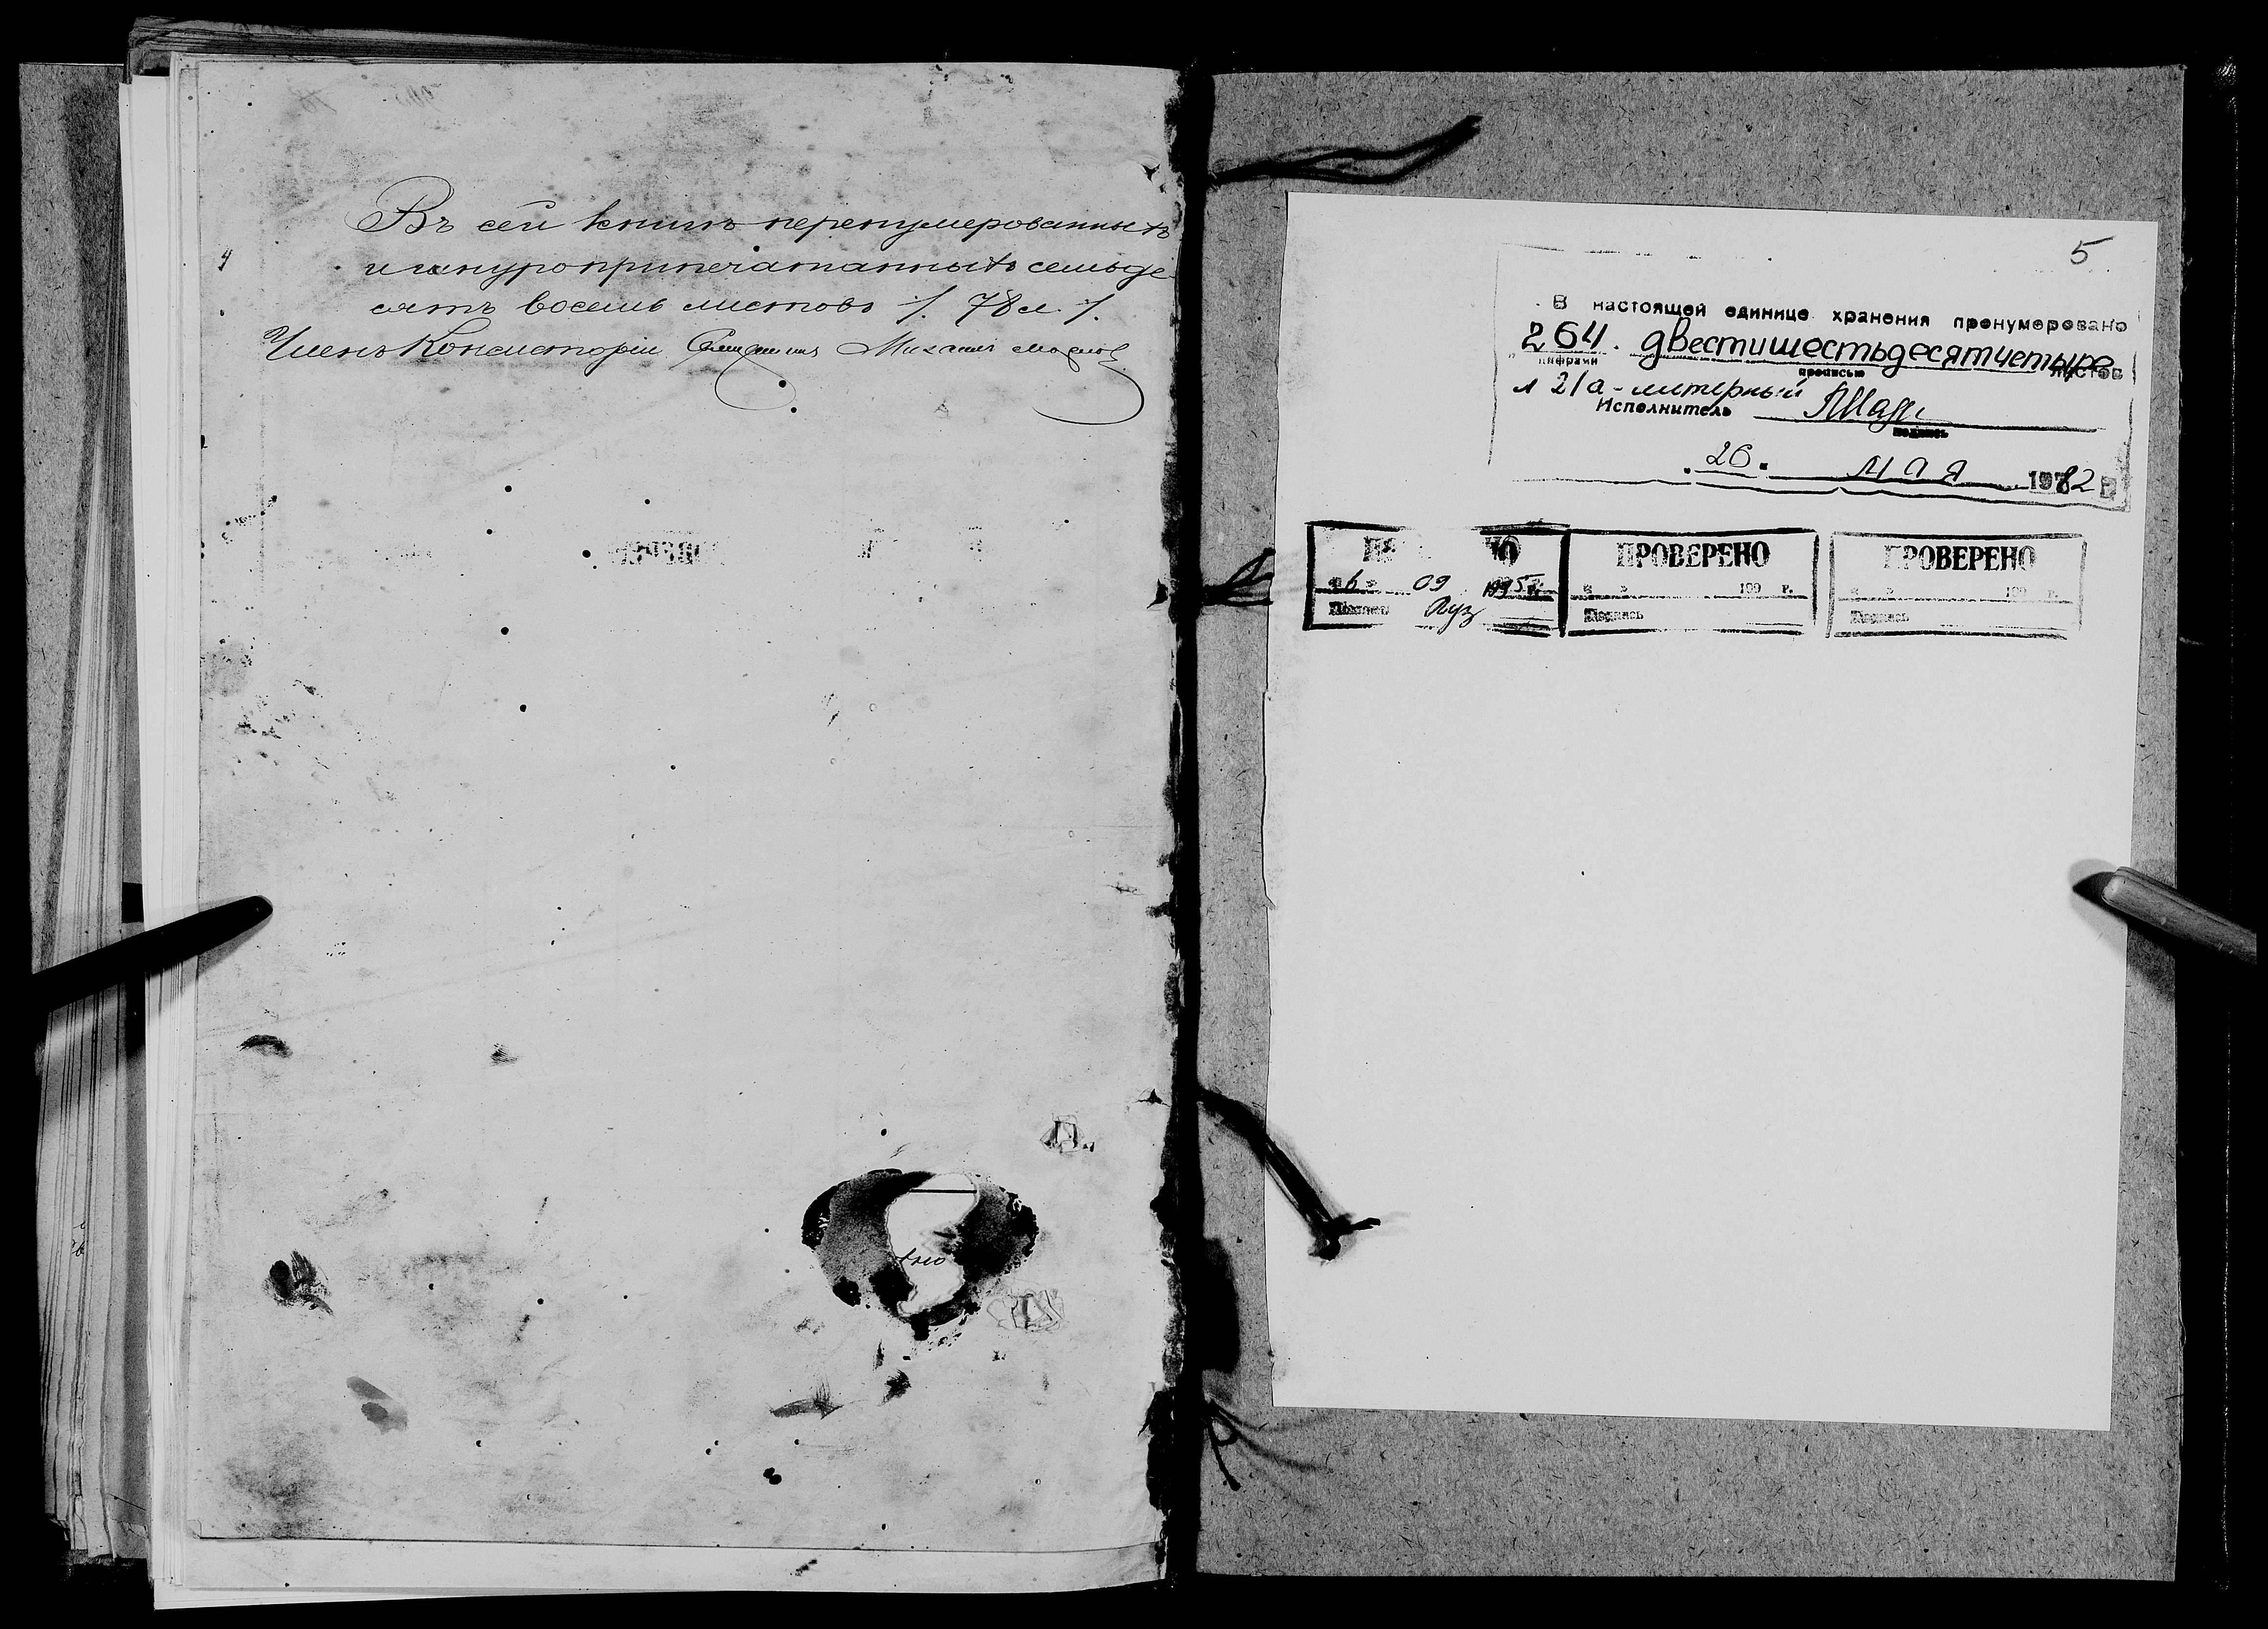 Въ сей книгѣ перенумерованныхъ
и шнуроприпечатанныхъ семьде
сятъ восемь листовъ /. 78 л. /.
Членъ Консисторіи Священникъ Михаилъ
5
В настоящей единице хранения пронумеровано
264. двестишестьдесятчетыре листов
цифрами прописью
л 21а - литерный
Исполнитель
подпись
26. мая 1982 г.
ПРОВЕРЕНО ПРОВЕРЕНО
« 6 » 09 1995 г. « » 199 г. « » 199 г.
Подпись Подпись Подпись